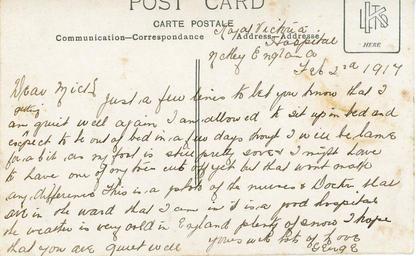 POST CARD
CARTE POSTALE
Communication-Correspondance
Address-Adresse
HERE
Royal Victoria
Hospital
Netley England
Feb 2nd 1917
Dear
Just a few lines to let you know that I
am getting quiet well again I am allowed to sit up in bed and
expect to be out of bed in a few days though I will be lame
for a bit as my foot is still pretty sore & I might have
to have one of my toes cut off yet but that wont make
any difference This is a photo of the nurses & Doctor that
are in the ward that I am in it is a good hospital
the weather is very cold in England plenty of snow I hope
that you are quiet well
yours with lots of love
George